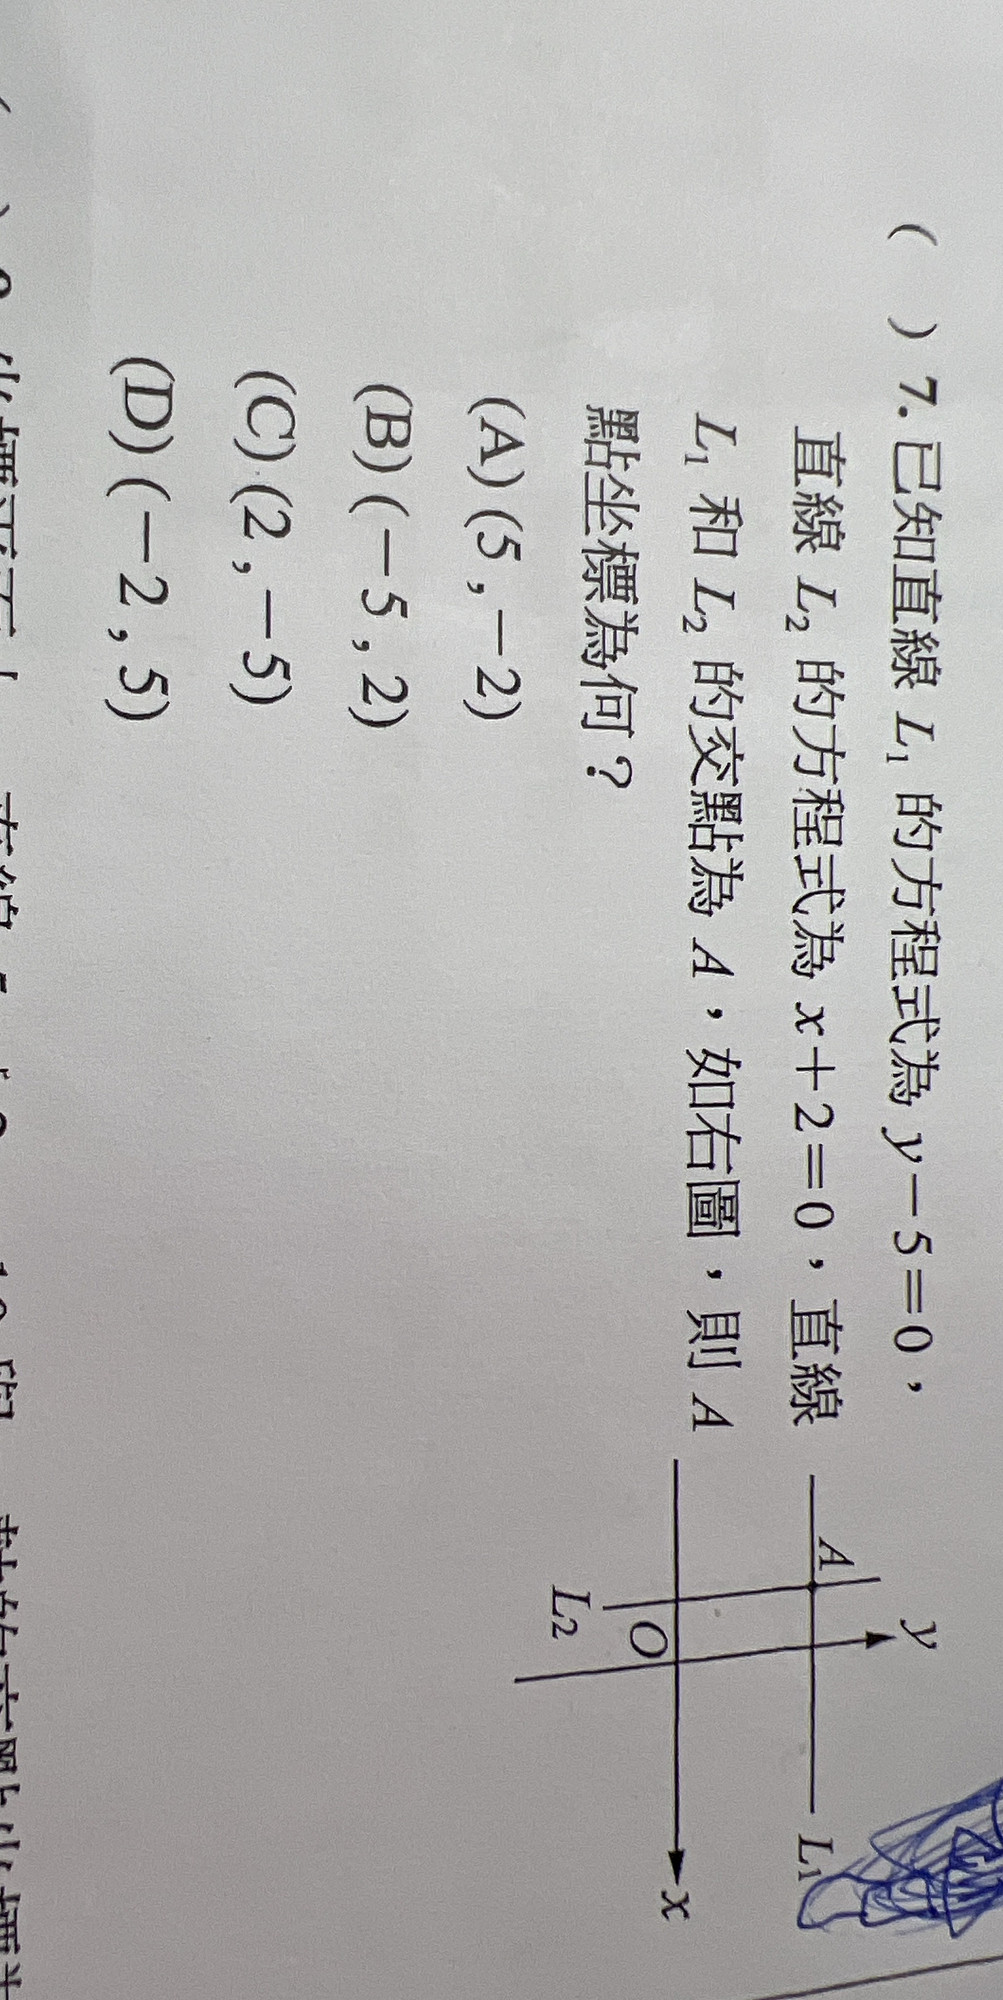 ( ) 7. 已知直線 L₁ 的方程式為 y－5＝0，
直線 L₂ 的方程式為 x＋2＝0，直線
L₁ 和 L₂ 的交點為 A，如右圖，則 A
點坐標為何？
(A) (5 , －2)
(B) (－5 , 2)
(C) (2 , －5)
(D) (－2 , 5)
y
A
L₁
O
x
L₂